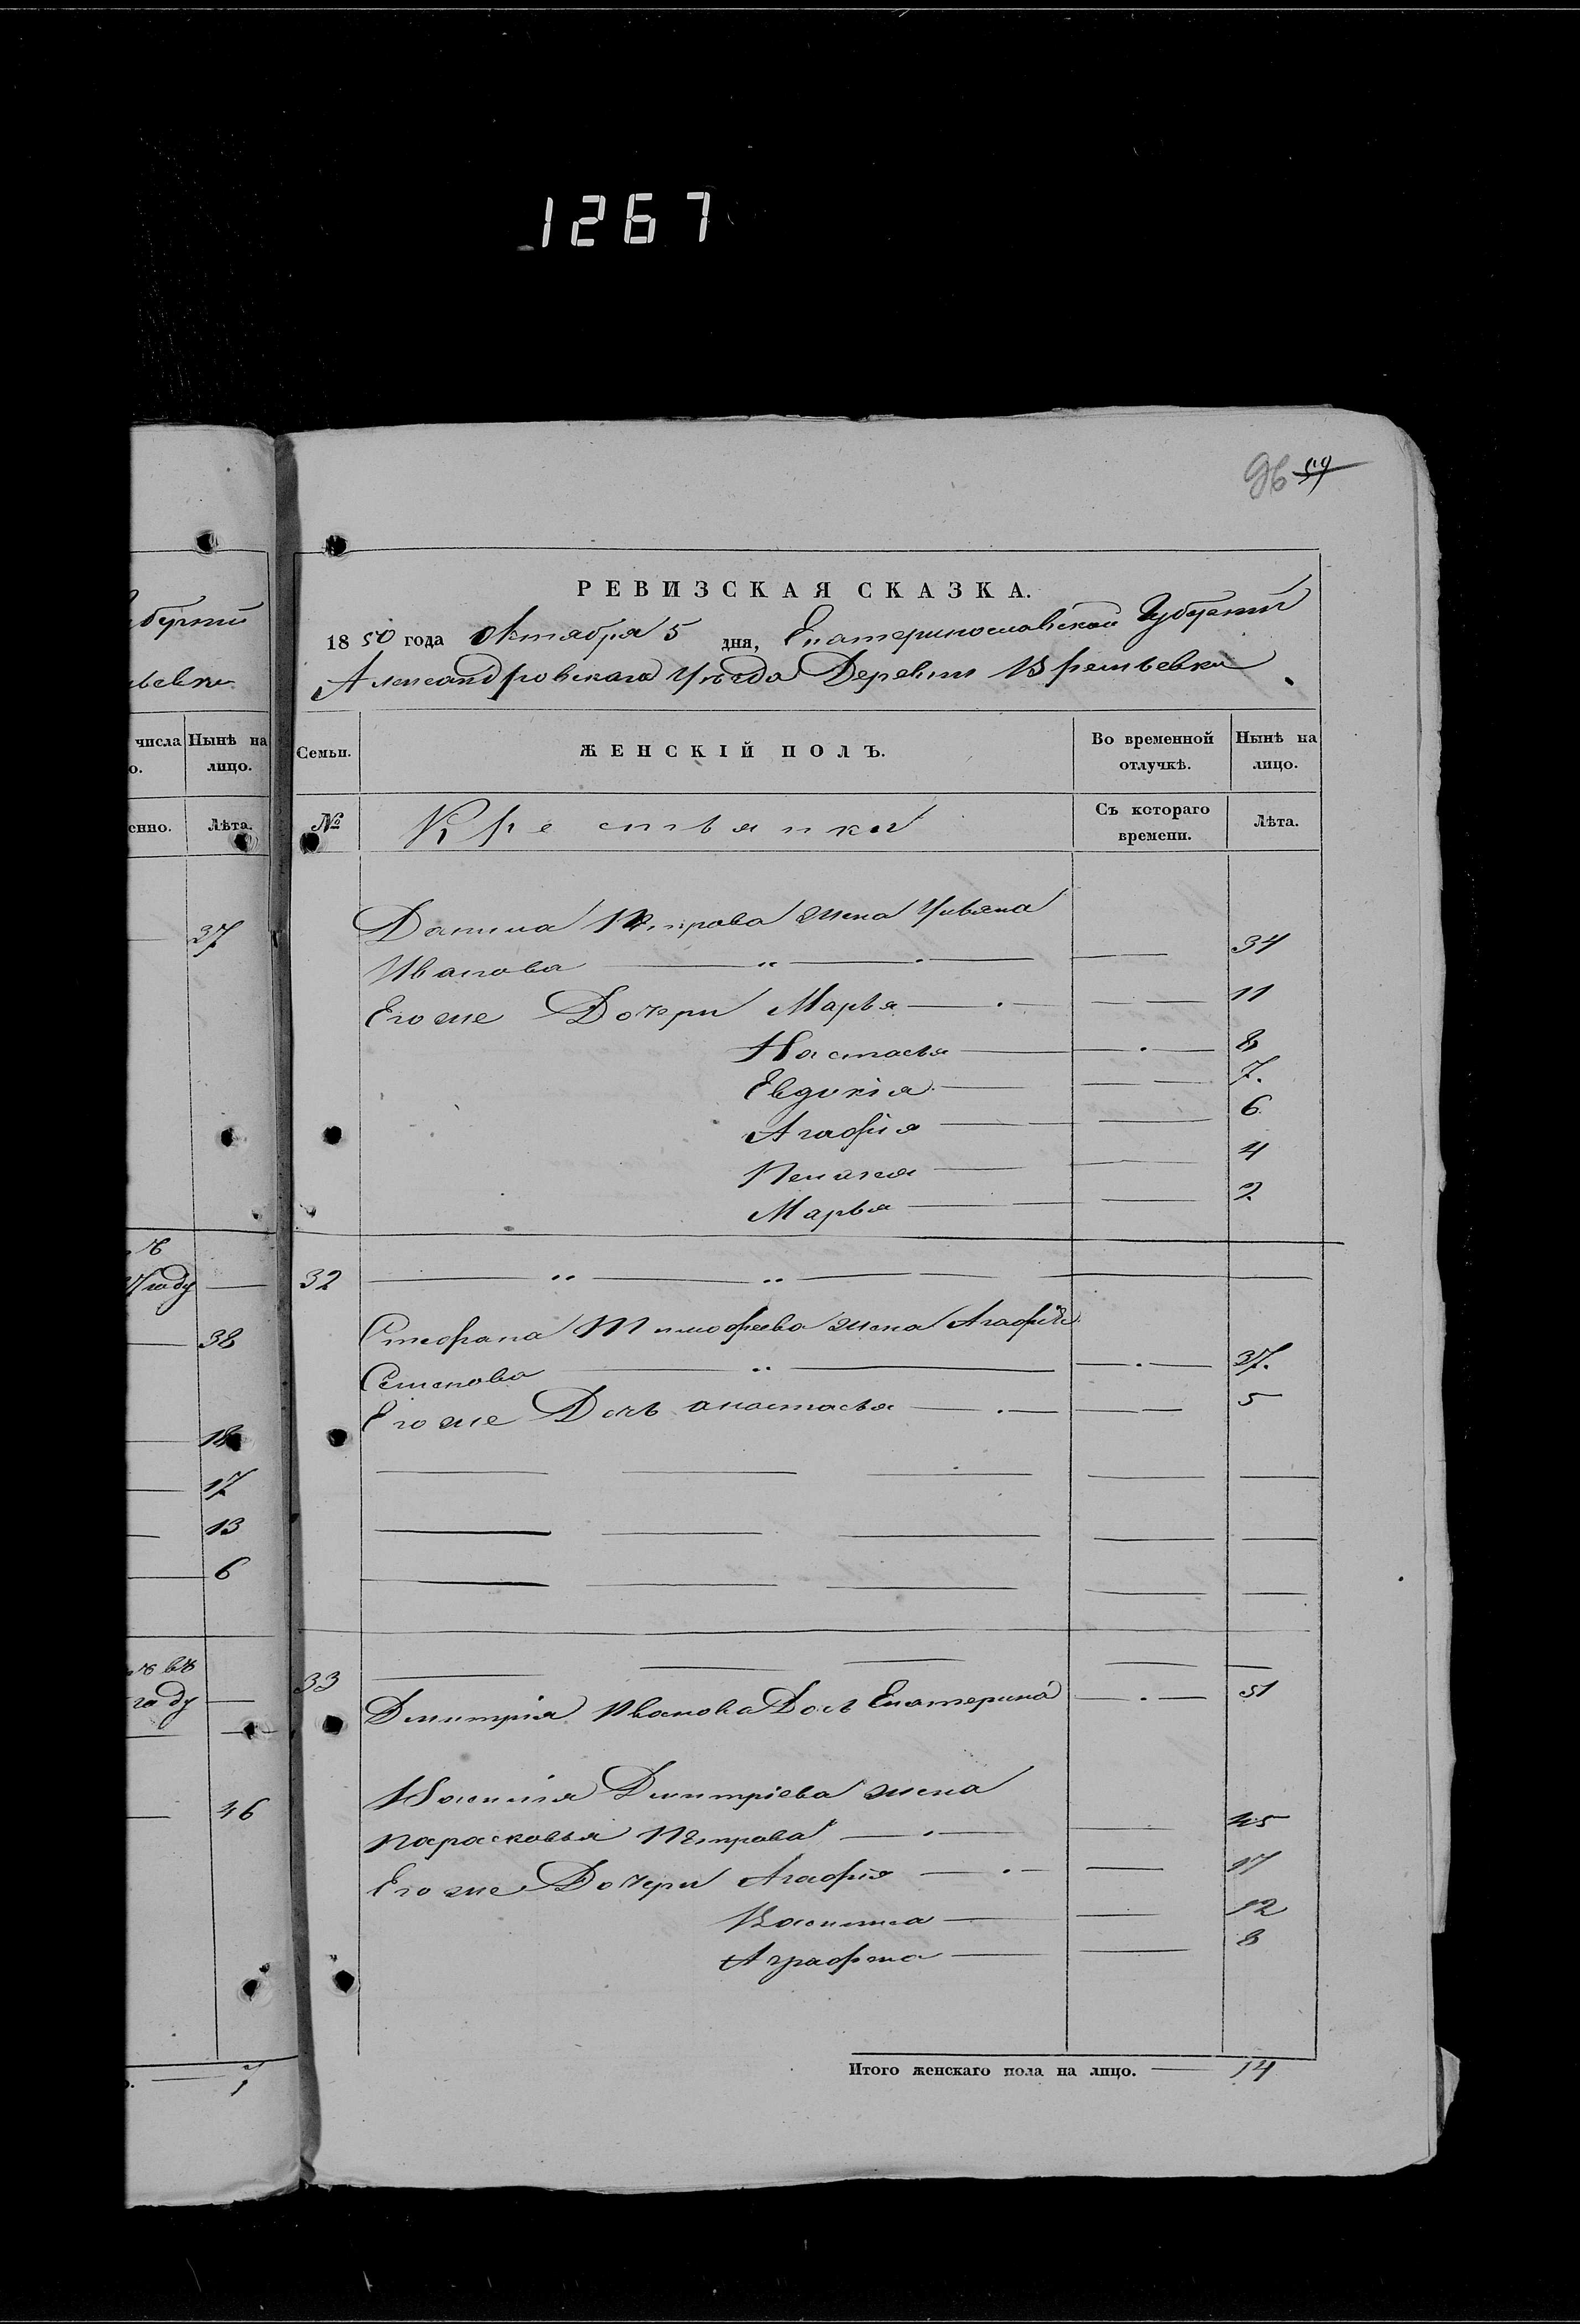 1267
96 59
РЕВИЗСКАЯ СКАЗКА.
1850 года Октября 5 дня, Екатеринославской Губернии
Александровскаго Уѣзда Деревни Времьевки
губерніи
ьевки
числа Нынѣ на
о. лицо.
енно. Лѣта.
37
году
38
18
17
13
6
году
46
Семьи. ЖЕНСКІЙ ПОЛЪ. Во временной отлучкѣ. Нынѣ на лицо.
№ Крестьянки Съ котораго времени. Лѣта.
Данила Петрова жена Ульяна
Иванова 34
Его же Дочери Марья 11
Настасья 8
Евдокія 7.
Агафія 6
Пелагея 4
Марья 2
32
Стефана Тимофеева жена Агафія
Семенова 37.
Его же Дочь анастасья 5
33
Дмитрія Иванова Дочь Екатерина 51
Василія Дмитріева жена
парасковья Петрова 45
Его же Дочери Агафія 17
Василиса 12
Аграфена 8
Итого женскаго пола на лицо. 14